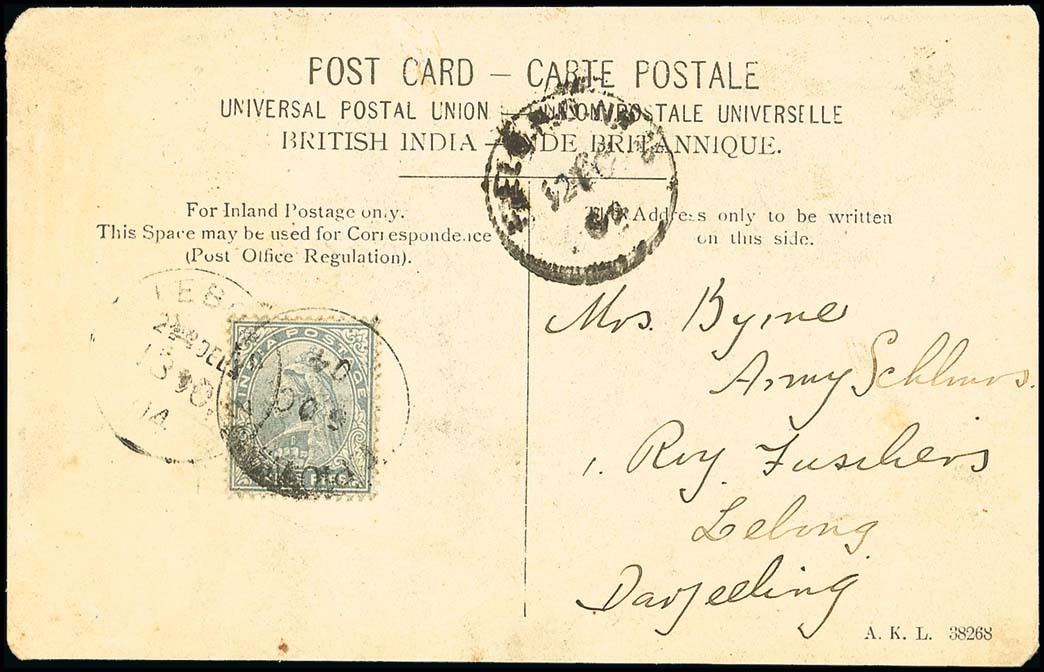 POST CARD – CARTE POSTALE
UNIVERSAL POSTAL UNION – UNION POSTALE UNIVERSELLE
BRITISH INDIA – INDE BRITANNIQUE.
For Inland Postage only.
This Space may be used for Correspondence
(Post Office Regulation).
The Address only to be written
on this side.
INDIA POSTAGE
LEBO
DE
04
Mrs. Byrne
Army Schlmrs.
1. Roy Fuschers
Lebong
Darjeeling
A. K. L. 38268